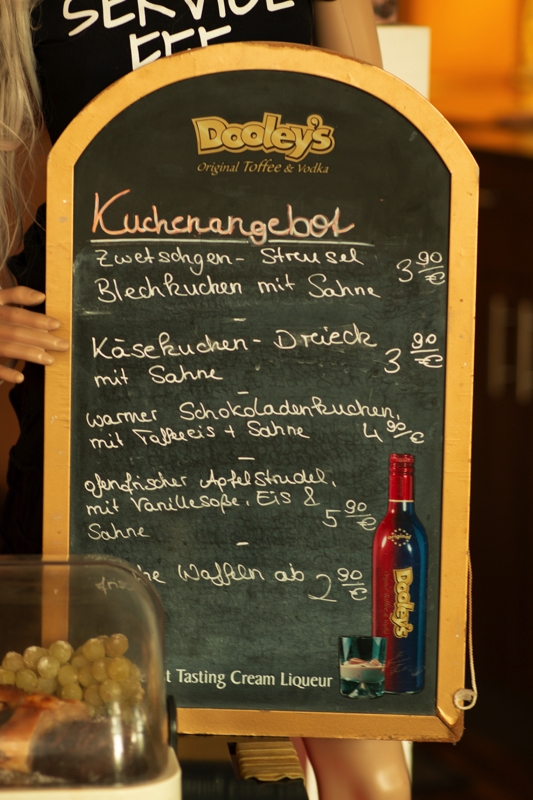 SERVICE
FEE
Dooley's
Original Toffee & Vodka
Kuchenangebot
Zwetschgen- Streusel
Blechkuchen mit Sahne 3 90 €
Käsekuchen- Dreieck
mit Sahne 3 90 €
warmer Schokoladenkuchen,
mit Toffeeeis + Sahne 4 90 €
ofenfrischer Apfelstrudel,
mit Vanillesoße, Eis &
Sahne 5 90 €
Waffeln ab 2 90 €
Dooley's
Tasting Cream Liqueur